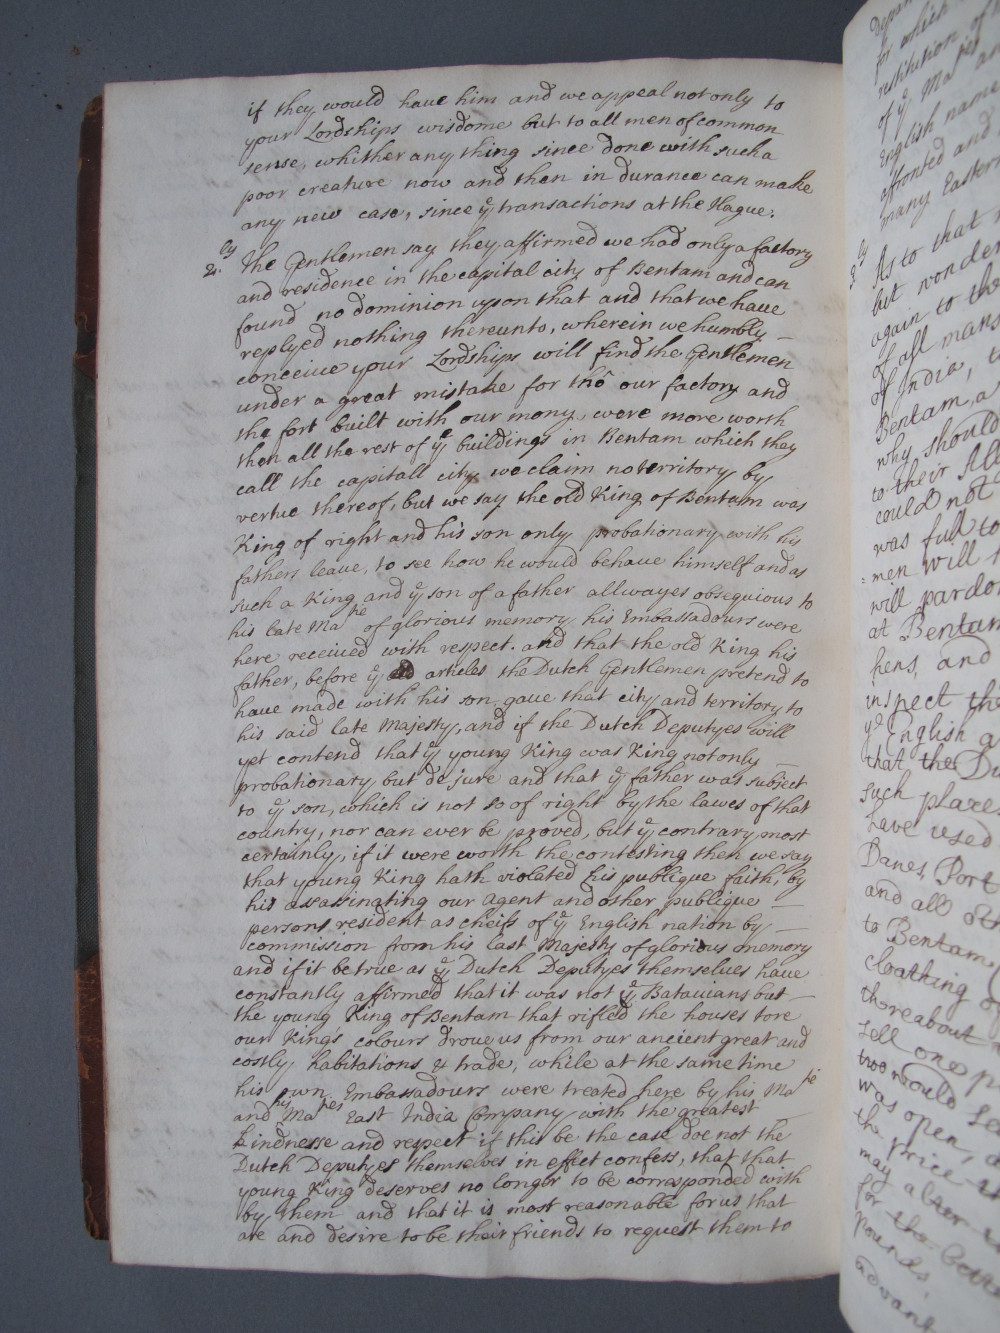 if they would haue him and we appeal not only to
your Lordships wisdome but to all men of common
sense, whither any thing since done with such a
poor creature now and then in durance can make
any new case, since yͤ transactions at the Hague.
2.ly The Gentlemen say they affirmed we had only a factory
and residence in the capital city of Bentam and can
found no dominion upon that and that we haue
replyed nothing thereunto, wherein we humbly
conceiue your Lordships will find the Gentlemen
under a great mistake for thô our factory and
the fort built with our mony, were more worth
then all the rest of yͤ buildings in Bentam which they
call the capitall city, we claim no territory by
vertue thereof, but we say the old King of Bentam was
King of right and his son only probationary with his
fathers leaue, to see how he would behaue himself and as
such a King and yͤ son of a father allwayes obsequious to
his late Matie of glorious memory, his Embassadours were
here receiued with respect. and that the old King his
father, before yͤ articles the Dutch Gentlemen pretend to
haue made with his son, gaue that city and territory to
his said late Majesty, and if the Dutch Deputyes will
yet contend that yͤ young King was King not only
probationary but de jure and that yͤ father was subject
to yͤ son, which is not so of right by the lawes of that
country, nor can ever be proved, but yͤ contrary most
certainly, if it were worth the contesting then we say
that young King hath violated his publique faith, by
his assassinating our Agent and other publique
persons resident as cheifs of yͤ English nation by
commission from his last Majesty of glorious memory
and if it be true as yͤ Dutch Deputyes themselues haue
constantly affirmed that it was not yͤ Batauians but
the young King of Bentam that rifled the houses tore
our King's colours droue us from our ancient great and
costly habitations & trade, while at the same time
his own Embassadours were treated here by his Matie
and his Maties East India Company with the greatest
kindnesse and respect if this be the case doe not the
Dutch Deputyes themselves in effect confess, that that
young King deserves no longer to be corresponded with
by them and that it is most reasonable for us that
are and desire to be their friends to request them to
for which
restitution of
of yͤ Maties
English name
affronted and
many Eastern
3.ly As to that
but wonder
again to the
of all mans
of India,
Bentam, a
why should
to their All
could not
was full to
men will
will pardon
at Bentam
hens, and
inspect the
yͤ English
that the Du
such place
have used
Danes, Port
and all oth
to Bentam,
cloathing of
thereabout
sell one p
two would se
was open,
the price
may alter
for the bette
pounds,
advant